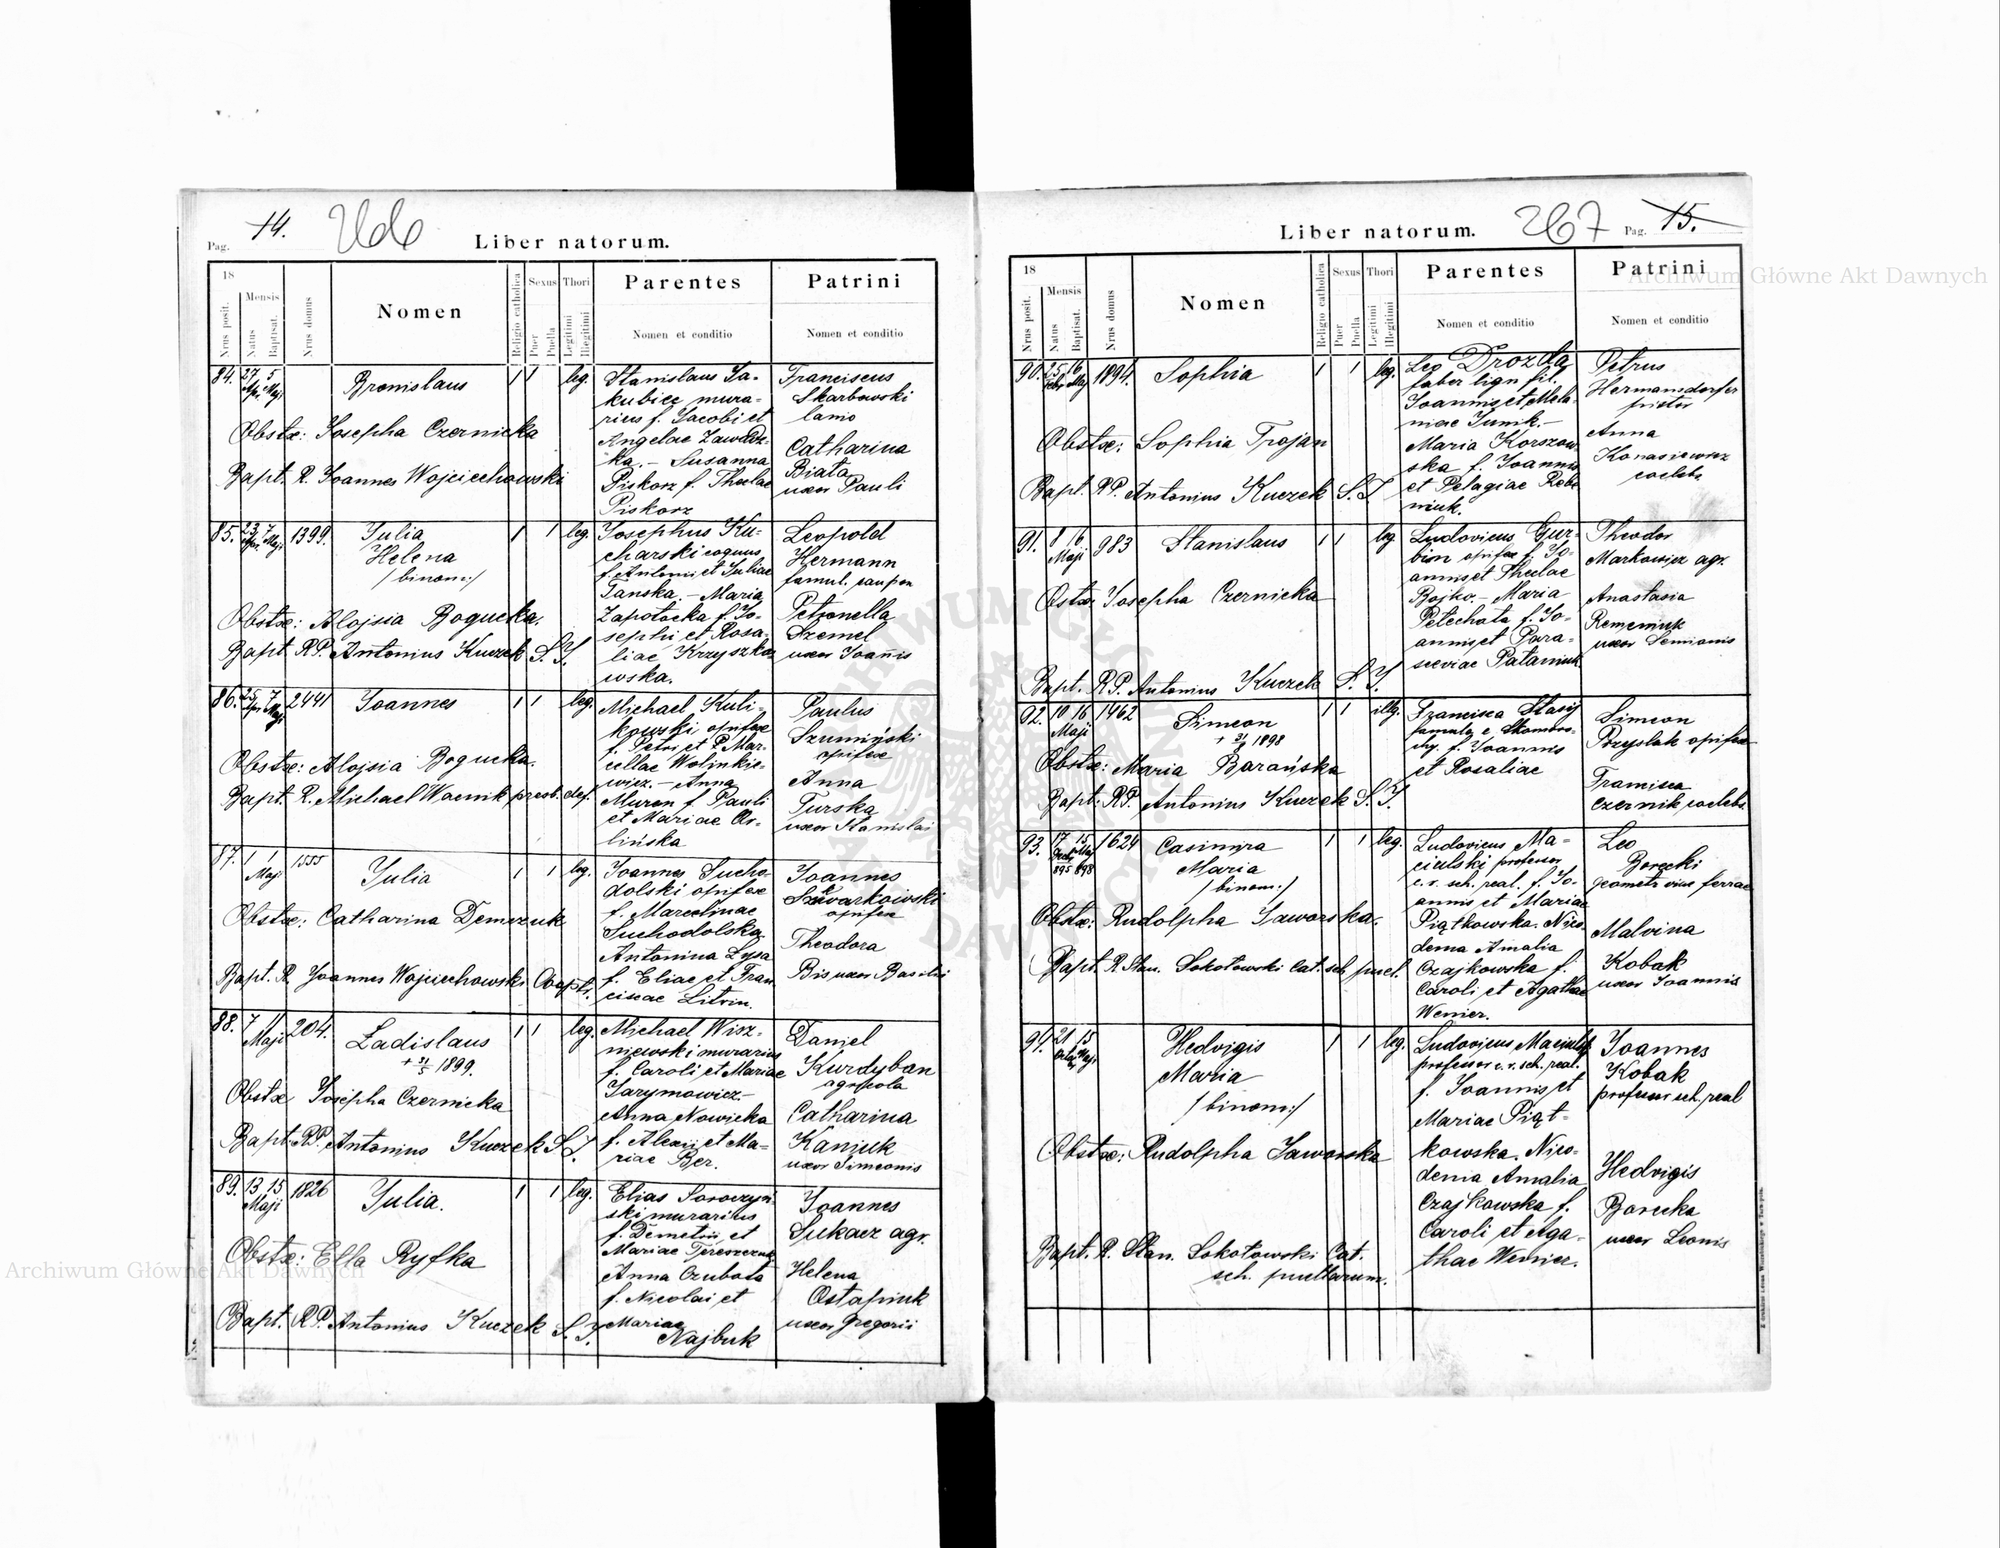 Pag. 14. 266 Liber natorum.
18
Nrus posit.
Mensis
Natus
Baptisat.
Nrus domus
Nomen
Religio catholica
Sexus
Puer
Puella
Thori
Legitimi
Illegitimi
Parentes
Nomen et conditio
Patrini
Nomen et conditio
84. 27 Apr. 5 Maji Bronislaus 1 1 leg.
Obstæ: Josepha Czernicka
Bapt. R. Joannes Wojciechowski
Stanislaus Ja-
kubicz mura-
rius f. Jacobi et
Angelae Zawadz-
ka. – Susanna
Piskorz f. Theclae
Piskorz
Franciscus
Skarbowski
lanio
Catharina
Biała
uxor Pauli
85. 23 Apr. 7 Maji 1399. Julia 1 1 leg.
Helena
/binom:/
Obstæ: Aloisia Bogucka.
Bapt. RP. Antonius Kuczek S.J.
Josephus Ku-
charski coquus
f. Antonii et Juliae
Tanska. – Maria
Zapotocka f. Jo-
sephi et Rosa-
liae Krzyszko
wska.
Leopold
Hermann
Petronella
Szemel
uxor Joanis
86. 25 Apr. 7 Maji 2441 Joannes 1 1 leg.
Obstæ: Aloisia Bogucka.
Bapt. R. Michael Wacnik presb. def.
Michael Kuli-
kowski opifex
f. Petri et P. Mar-
cellae Wolinkie-
wicz. – Anna
Muron f. Pauli
et Mariae Or-
lińska
Paulus
Szumiński
opifex
Anna
Turska
uxor Stanislai
87. 1 1 Maji 1555 Julia 1 1 leg.
Obstæ: Catharina Demczuk
Bapt. R. Joannes Wojciechowski Coop.
Joannes Sucho-
dolski opifex
f. Marcelinae
Suchodolska.
Antonina Lysa
f. Eliae et Fran
ciscae Litvin.
Joannes
Skwarkowski
opifex
Theodora
Bis uxor Basilii
88. 7 11 Maji 204. Ladislaus 1 1 leg.
+ 21/5 1899.
Obstæ Josepha Czernicka
Bapt. RP. Antonius Kuczek S.J.
Michael Wisz-
niewski murarius
f. Caroli et Mariae
Jarymowicz –
Anna Nowicka
f. Alexii et Ma-
riae Ber.
Daniel
Kurdyban
agricola
Catharina
Kaniuk
uxor Simeonis
89. 13 15 Maji 1826 Julia. 1 1 leg.
Obstæ: Ella Ryfka
Bapt. RP. Antonius Kuczek S.J.
Elias Soroczyń
ski murarius
f. Demetrii et
Mariae Tereszczuk
Anna Czubata
f. Nicolai et
Mariae
Najbuk
Joannes
Sukacz agr.
Helena
Ostapiuk
uxor Gregorii
Liber natorum. 267 Pag. 15.
18
Nrus posit.
Mensis
Natus
Baptisat.
Nrus domus
Nomen
Religio catholica
Sexus
Puer
Puella
Thori
Legitimi
Illegitimi
Parentes
Nomen et conditio
Patrini
Nomen et conditio
90. 25 Febr. 16 Maj 1894. Sophia 1 1 leg.
Obstæ: Sophia Trojan
Bapt. RP. Antonius Kuczek S.J.
Leo Drozda
faber lign fil.
Joannis et Mela-
niae Junik. –
Maria Korszow
ska f. Joannis
et Pelagiae Rebe
niuk.
Petrus
Hermansdorfer
pistor
Anna
Konasiewicz
coelebs
91. 8 16 Maji 983 Stanislaus 1 1 leg.
Obstæ: Josepha Czernicka
Bapt. RP. Antonius Kuczek S.J.
Ludovicus Gur-
bin opifex f. Jo-
annis et Theclae
Bojko. – Maria
Petechata f. Jo-
annis et Para-
sceviae Pataniuk
Theodor
Markowicz agr.
Anastasia
Remeniuk
uxor Semionis
92. 10 16 Maji 1462 Simeon 1 1 illeg.
1898
Obstæ: Maria Barańska
Bapt. RP. Antonius Kuczek S.J.
Francisca Stasij
famula e Skomoro-
chy. f. Joannis
et Rosaliae
Simeon
Przyslak opifex
Francisca
Czernik coelebs.
93. 17 15 Maj 895 898 1624 Casimira 1 1 leg.
Maria
/binom:/
Obstæ: Rudolpha Jaworska.
Bapt. R. Stan. Sokołowski Cat. sch. puel.
Ludovicus Ma-
ciulski professor
c. r. sch. real. f. Jo-
annis et Mariae
Piątkowska. Nico-
dema Amalia
Czajkowska f.
Caroli et Agathae
Wenier.
Leo
Borecki
geometr viae ferrae
Malvina
Kobak
uxor Joannis
94. 21 15 Maji Hedvigis 1 1 leg.
Maria
/binom:/
Obstæ: Rudolpha Jaworska
Bapt. R. Stan. Sokołowski Cat.
sch. puellarum.
Ludovicus Maciulski
professor c. r. sch. real.
f. Joannis et
Mariae Piąt-
kowska. Nico-
dema Amalia
Czajkowska f.
Caroli et Aga-
thae Wenier.
Joannes
Kobak
professor sch. real
Hedvigis
Borecka
uxor Leonis
Archiwum Główne Akt Dawnych
Archiwum Główne Akt Dawnych
ARCHIWUM GŁÓWNE AKT DAWNYCH